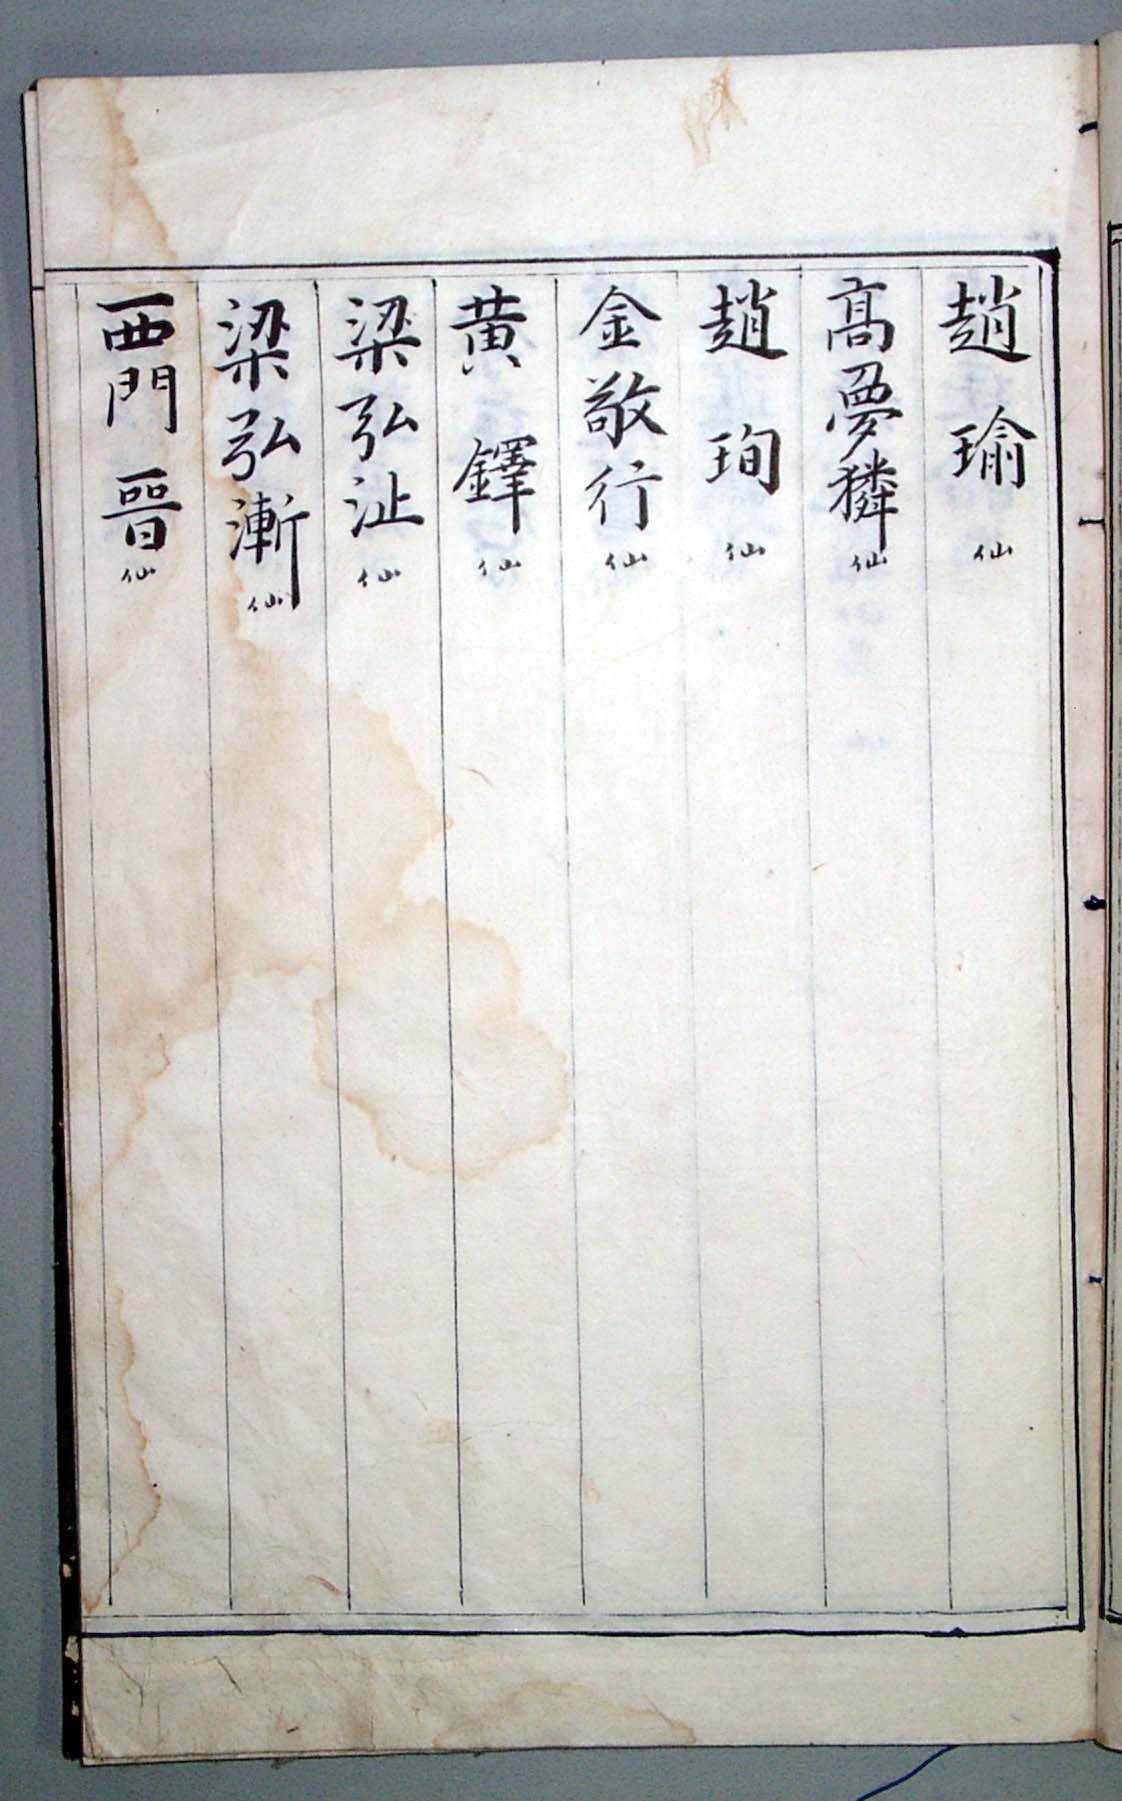 趙瑜仙
高夢獜仙
趙珣仙
金敬行仙
黃鐸仙
梁弘沚仙
梁弘漸仙
西門晋仙